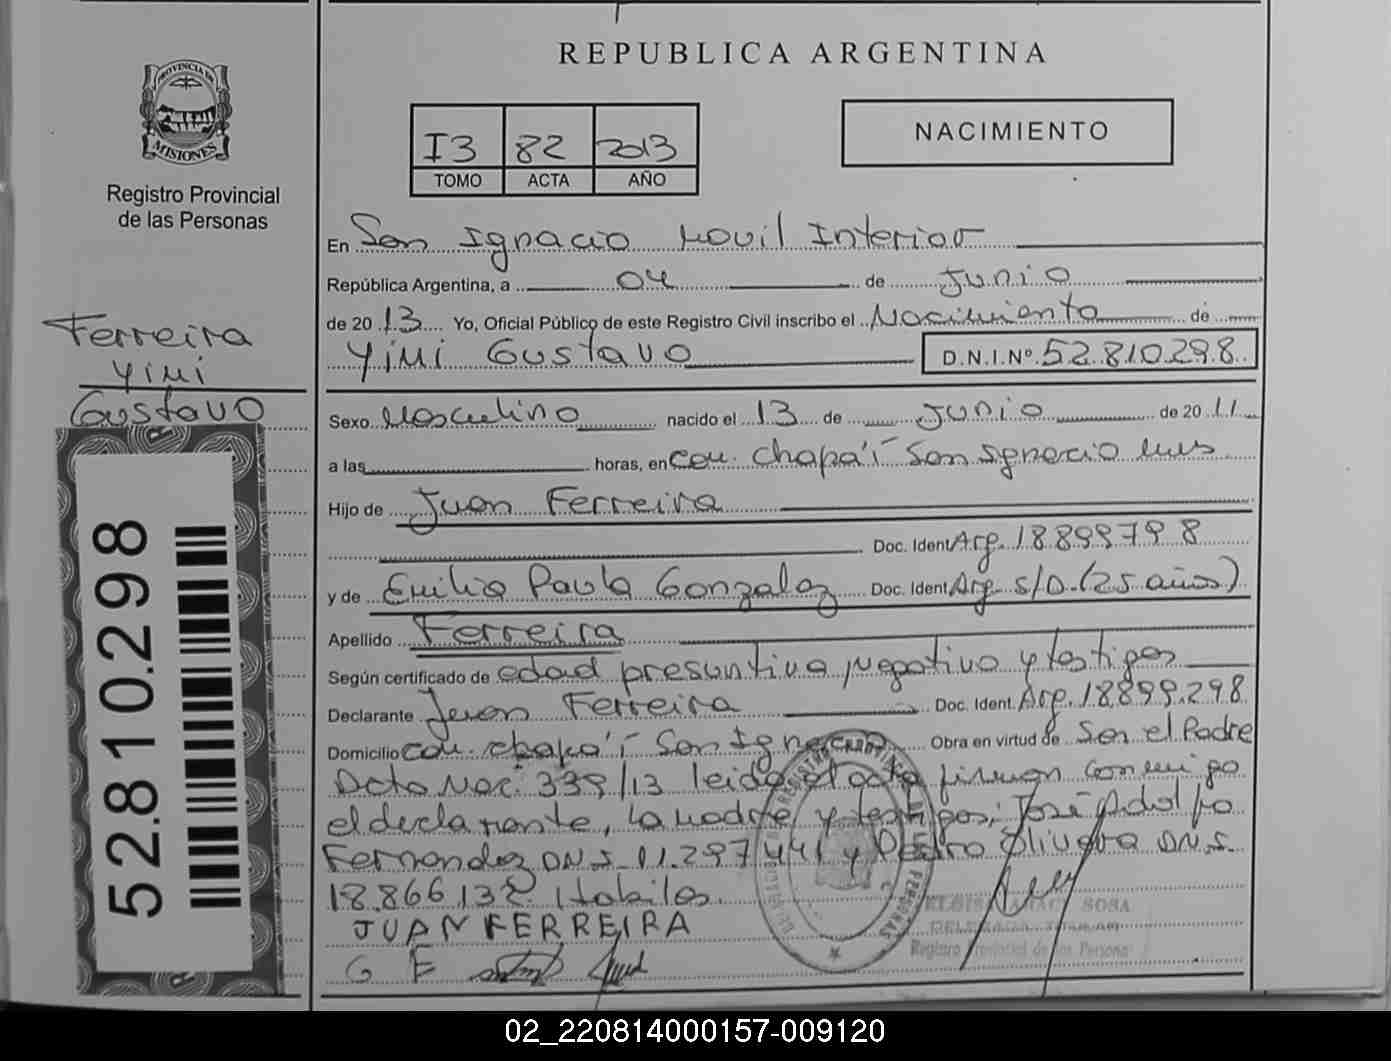 REPUBLICA ARGENTINA
PROVINCIA DE
MISIONES
Registro Provincial
de las Personas
I3 82 2013
TOMO ACTA AÑO
NACIMIENTO
En San Ignacio Movil Interior
República Argentina, a 04 de Junio
de 2013 Yo, Oficial Público de este Registro Civil inscribo el Nacimiento de
Yimi Gustavo D.N.I.Nº 52.810.298.
Ferreira
Yimi
Gustavo
Sexo Masculino nacido el 13 de Junio de 2011
a las horas, en Com. chapa'í San Ignacio
Hijo de Juan Ferreira
Doc. Ident Arg. 18899798
y de Emilia Paula Gonzalez Doc. Ident Arg. S/D. (25 años)
Apellido Ferreira
Según certificado de edad presuntiva, negativo y testigos
Declarante Juan Ferreira Doc. Ident. Arg. 18.899.298
Domicilio com. chapa'í San Ignacio Obra en virtud de Ser el Padre
Dcto Nac. 339/13 leida el acta firman conmigo
el declarante, la madre y testigos; José Adolfo
Fernandez DNI. 11.297.441 y Pedro Olivera DNI.
18.866.132 Habiles.
JUAN FERREIRA
G F
SOSA
DELEGADA TITULAR
Registro Provincial de las Personas
52.810.298
02_220814000157-009120